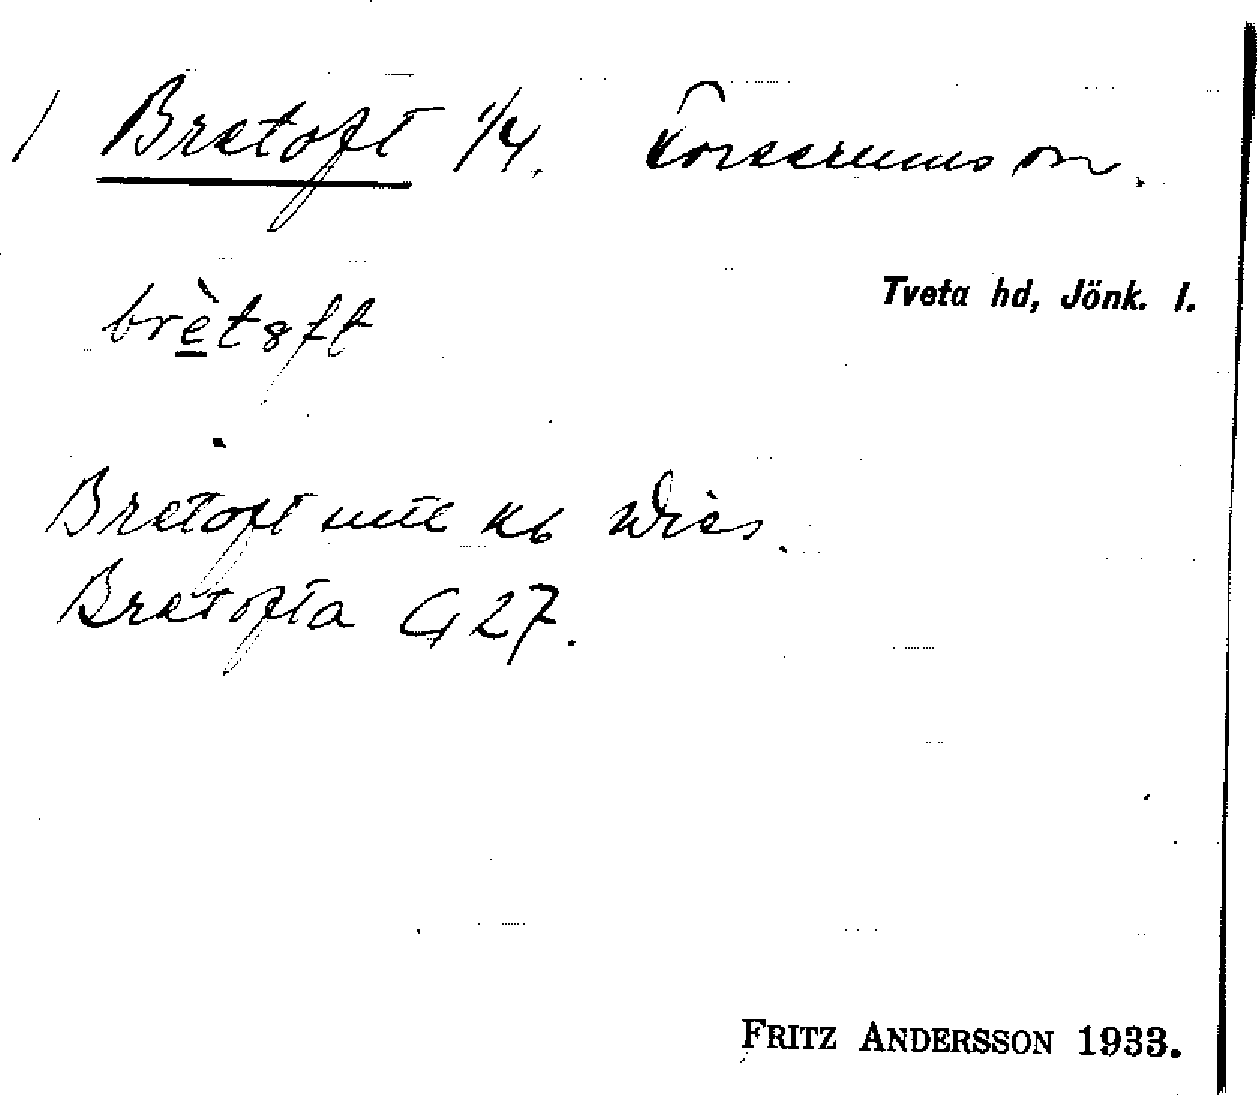 / Bretoft 1/4. Forserums sn.
Tveta hd, Jönk. l.
brètoft
Bretoft utte Kb
Bretofta G 27.
FRITZ ANDERSSON 1933.